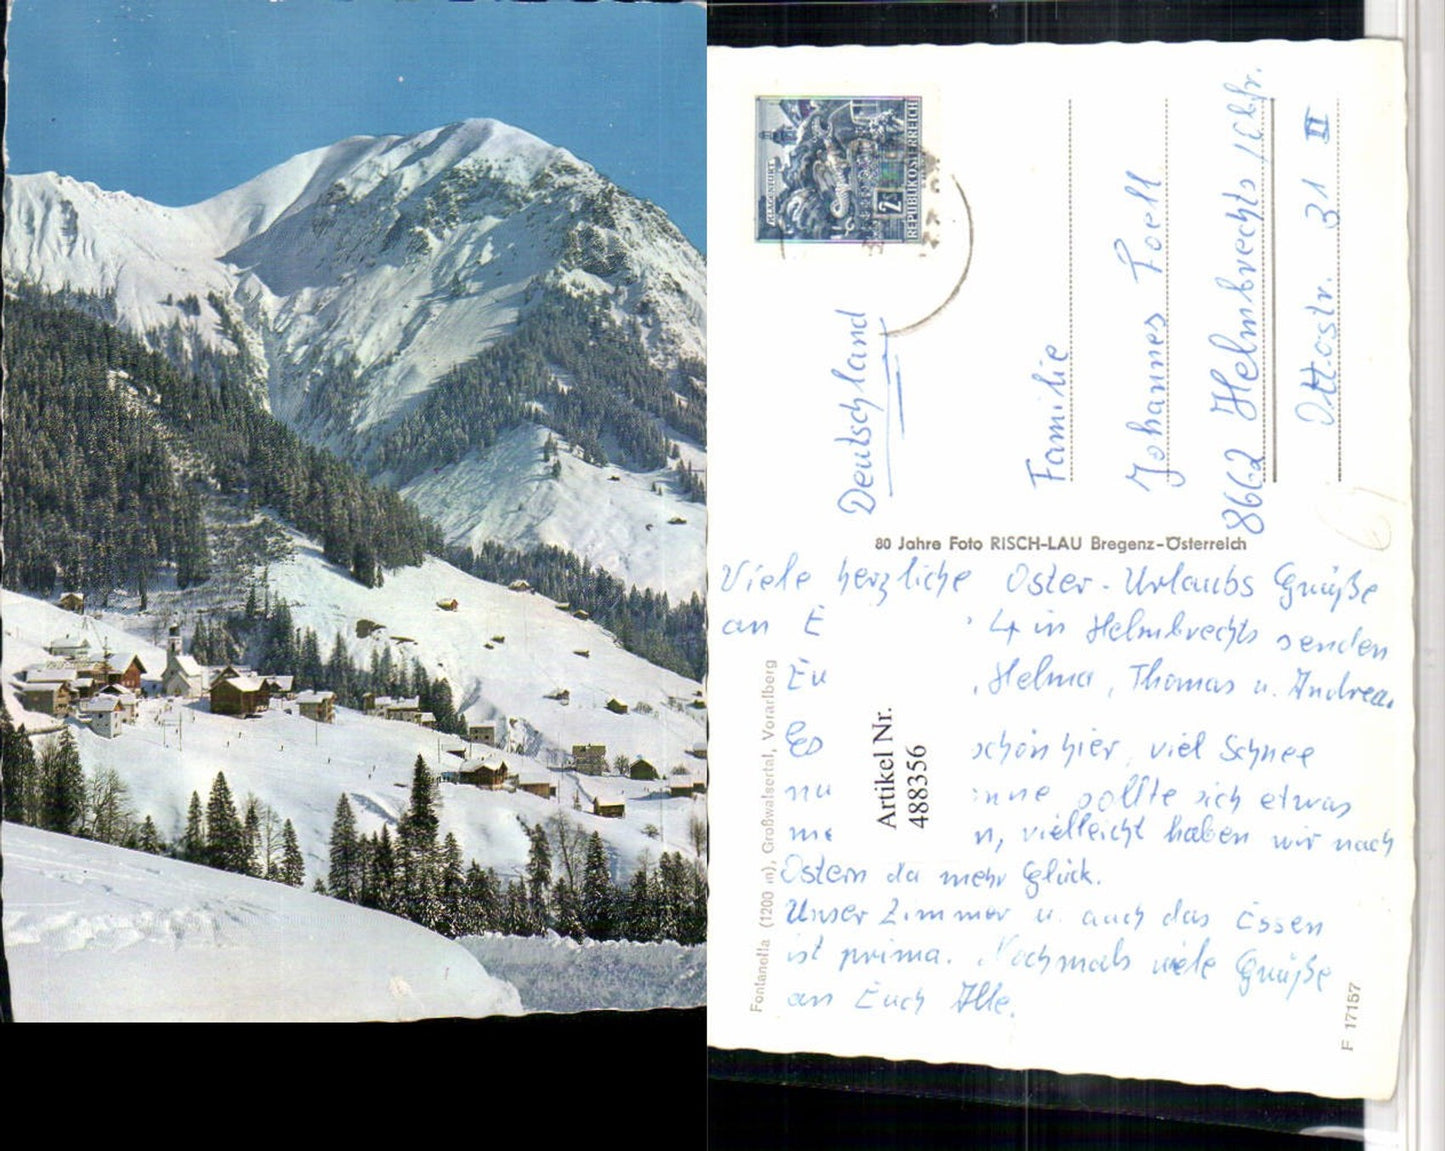 KLAGENFURT
2
REPUBLIK ÖSTERREICH
Deutschland
Familie
Johannes
8662 Helmbrechts
Ottostr. 31 II
80 Jahre Foto RISCH-LAU Bregenz-Österreich
Viele herzliche Oster-Urlaubs Grüße
an E 4 in Helmbrechts senden
Eu , Helma, Thomas u. Andrea.
Es schön hier, viel Schnee
nu nne sollte sich etwas
me n, vielleicht haben wir nach
Ostern da mehr Glück.
Unser Zimmer u. auch das Essen
ist prima. Nochmals viele Grüße
an Euch Alle.
Artikel Nr.
488356
Fontanella (1200 m), Großwalsertal, Vorarlberg
F 17157